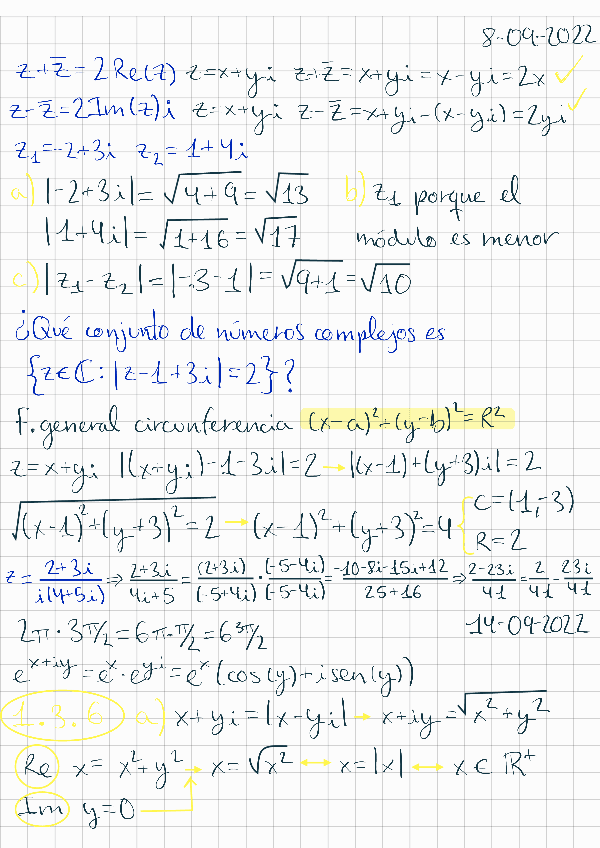 8-09-2022
z+z̅=2Re(z) z=x+yi z+z̅=x+yi=x-yi=2x ✓
z-z̅=2Im(z)i z=x+yi z-z̅=x+yi-(x-yi)=2yi ✓
z₁=-2+3i z₂=1+4i
a) |-2+3i|=√(4+9)=√13 b) z₁ porque el
|1+4i|=√(1+16)=√17 módulo es menor
c) |z₁-z₂|=|-3-1|=√(9+1)=√10
¿Qué conjunto de números complejos es
{z∈ℂ: |z-1+3i|=2}?
F. general circunferencia (x-a)²+(y-b)²=R²
z=x+yi |(x+yi)-1-3i|=2→|(x-1)+(y+3)i|=2
√((x-1)²+(y+3)²=2 → (x-1)²+(y+3)²=4 { C=(1,-3)
R=2
z=(2+3i)/(i(4+5i))⇒(2+3i)/(4i+5)=(2+3i)/(-5+4i)·(-5-4i)/(-5-4i)=(-10-8i-15i+12)/(25+16)⇒(2-23i)/41=2/41-23i/41
2π·3π/2=6π·π/2=6³π/2 14-09-2022
e^(x+iy)=e^x·e^(yi)=e^x(cos(y)+isen(y))
1.3.6 a) x+yi=|x-yi|→x+iy=√(x²+y²)
Re x=x²+y²→x=√x²↔x=|x|↔x∈ℝ⁺
Im y=0